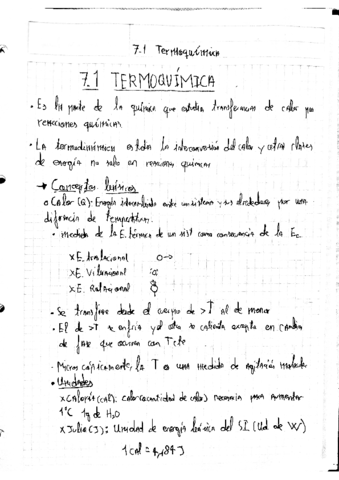 7.1 Termoquímica
7.1 TERMOQUÍMICA
• Es la parte de la química que estudia transferencias de calor por
reacciones químicas.
• La termodinámica estudia la interconversión del calor y otras clases
de energía no solo en reacciones químicas
→ Conceptos básicos
o Calor (Q): Energía intercambiada entre un sistema y sus alrededores por una
diferencia de temperatura.
• medida de la E. térmica de un sist como consecuencia de la Ec
x E. traslacional
x E. Vibracional
x E. Rotacional
• Se transfiere desde el cuerpo de >T al de menor
• El de >T se enfría y el otro se calienta excepto en cambios
de fase que ocurren con T cte
• Microscópicamente, la T es una medida de agitación molecular
• Unidades
x Caloría (cal): calor (o cantidad de calor) necesaria para aumentar
1°C 1g de H2O
x Julio (J): Unidad de energía básica del S.I (Ud de W)
1 cal = 4,184 J